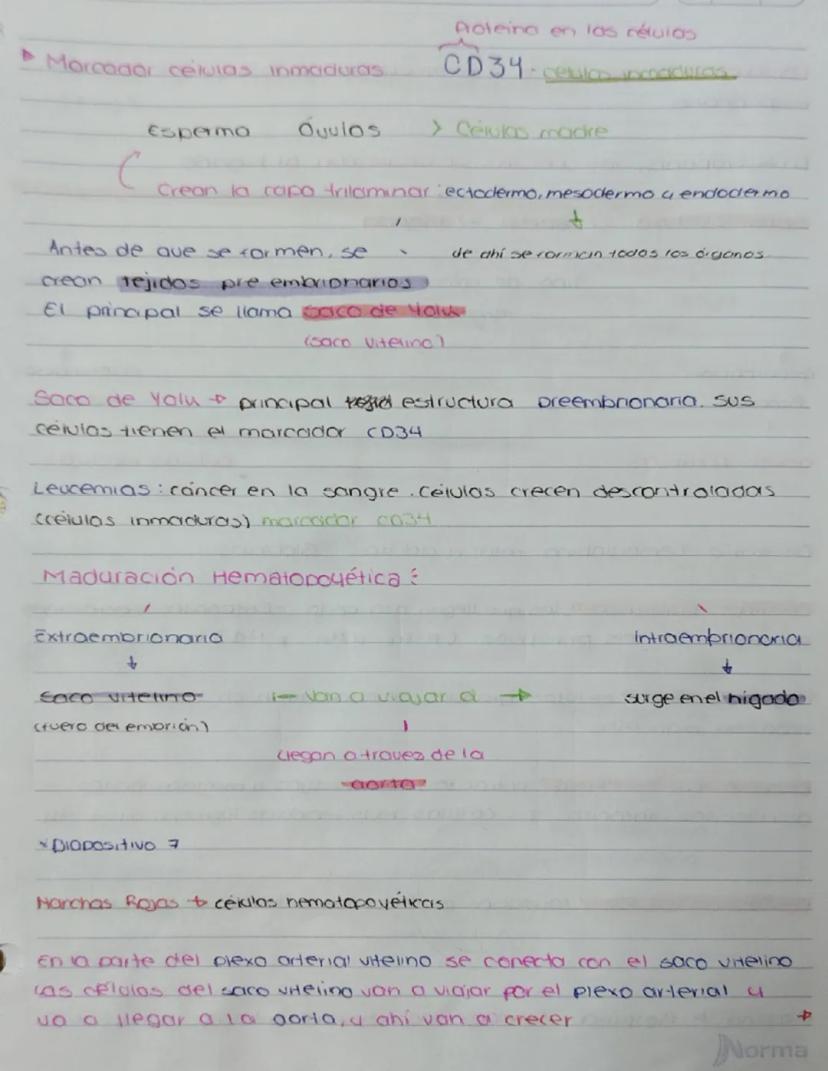 Proteína en las células
▸ Marcador células inmaduras CD34 - células inmaduras
Esperma Óvulos > Células madre
Crean la capa trilaminar: ectodermo, mesodermo y endodermo
Antes de que se formen, se de ahí se forman todos los órganos
crean tejidos pre embrionarios
El principal se llama saco de Yolu
(saco vitelino)
Saco de Yolu → principal estructura preembrionaria. sus
células tienen el marcador CD34
Leucemias: cáncer en la sangre. Células crecen descontroladas
(células inmaduras) marcador CD34
Maduración Hematopoyética:
Extraembrionario Intraembrionaria
↓ ↓
saco vitelino ← van a viajar a → surge en el hígado
(fuera del embrión)
llegan a travez de la
aorta
*Diapositiva 7
Manchas Rojas → células hematopoyéticas
En la parte del plexo arterial vitelino se conecta con el saco vitelino
Las células del saco vitelino van a viajar por el plexo arterial y
va a llegar a la aorta, y ahí van a crecer →
Norma